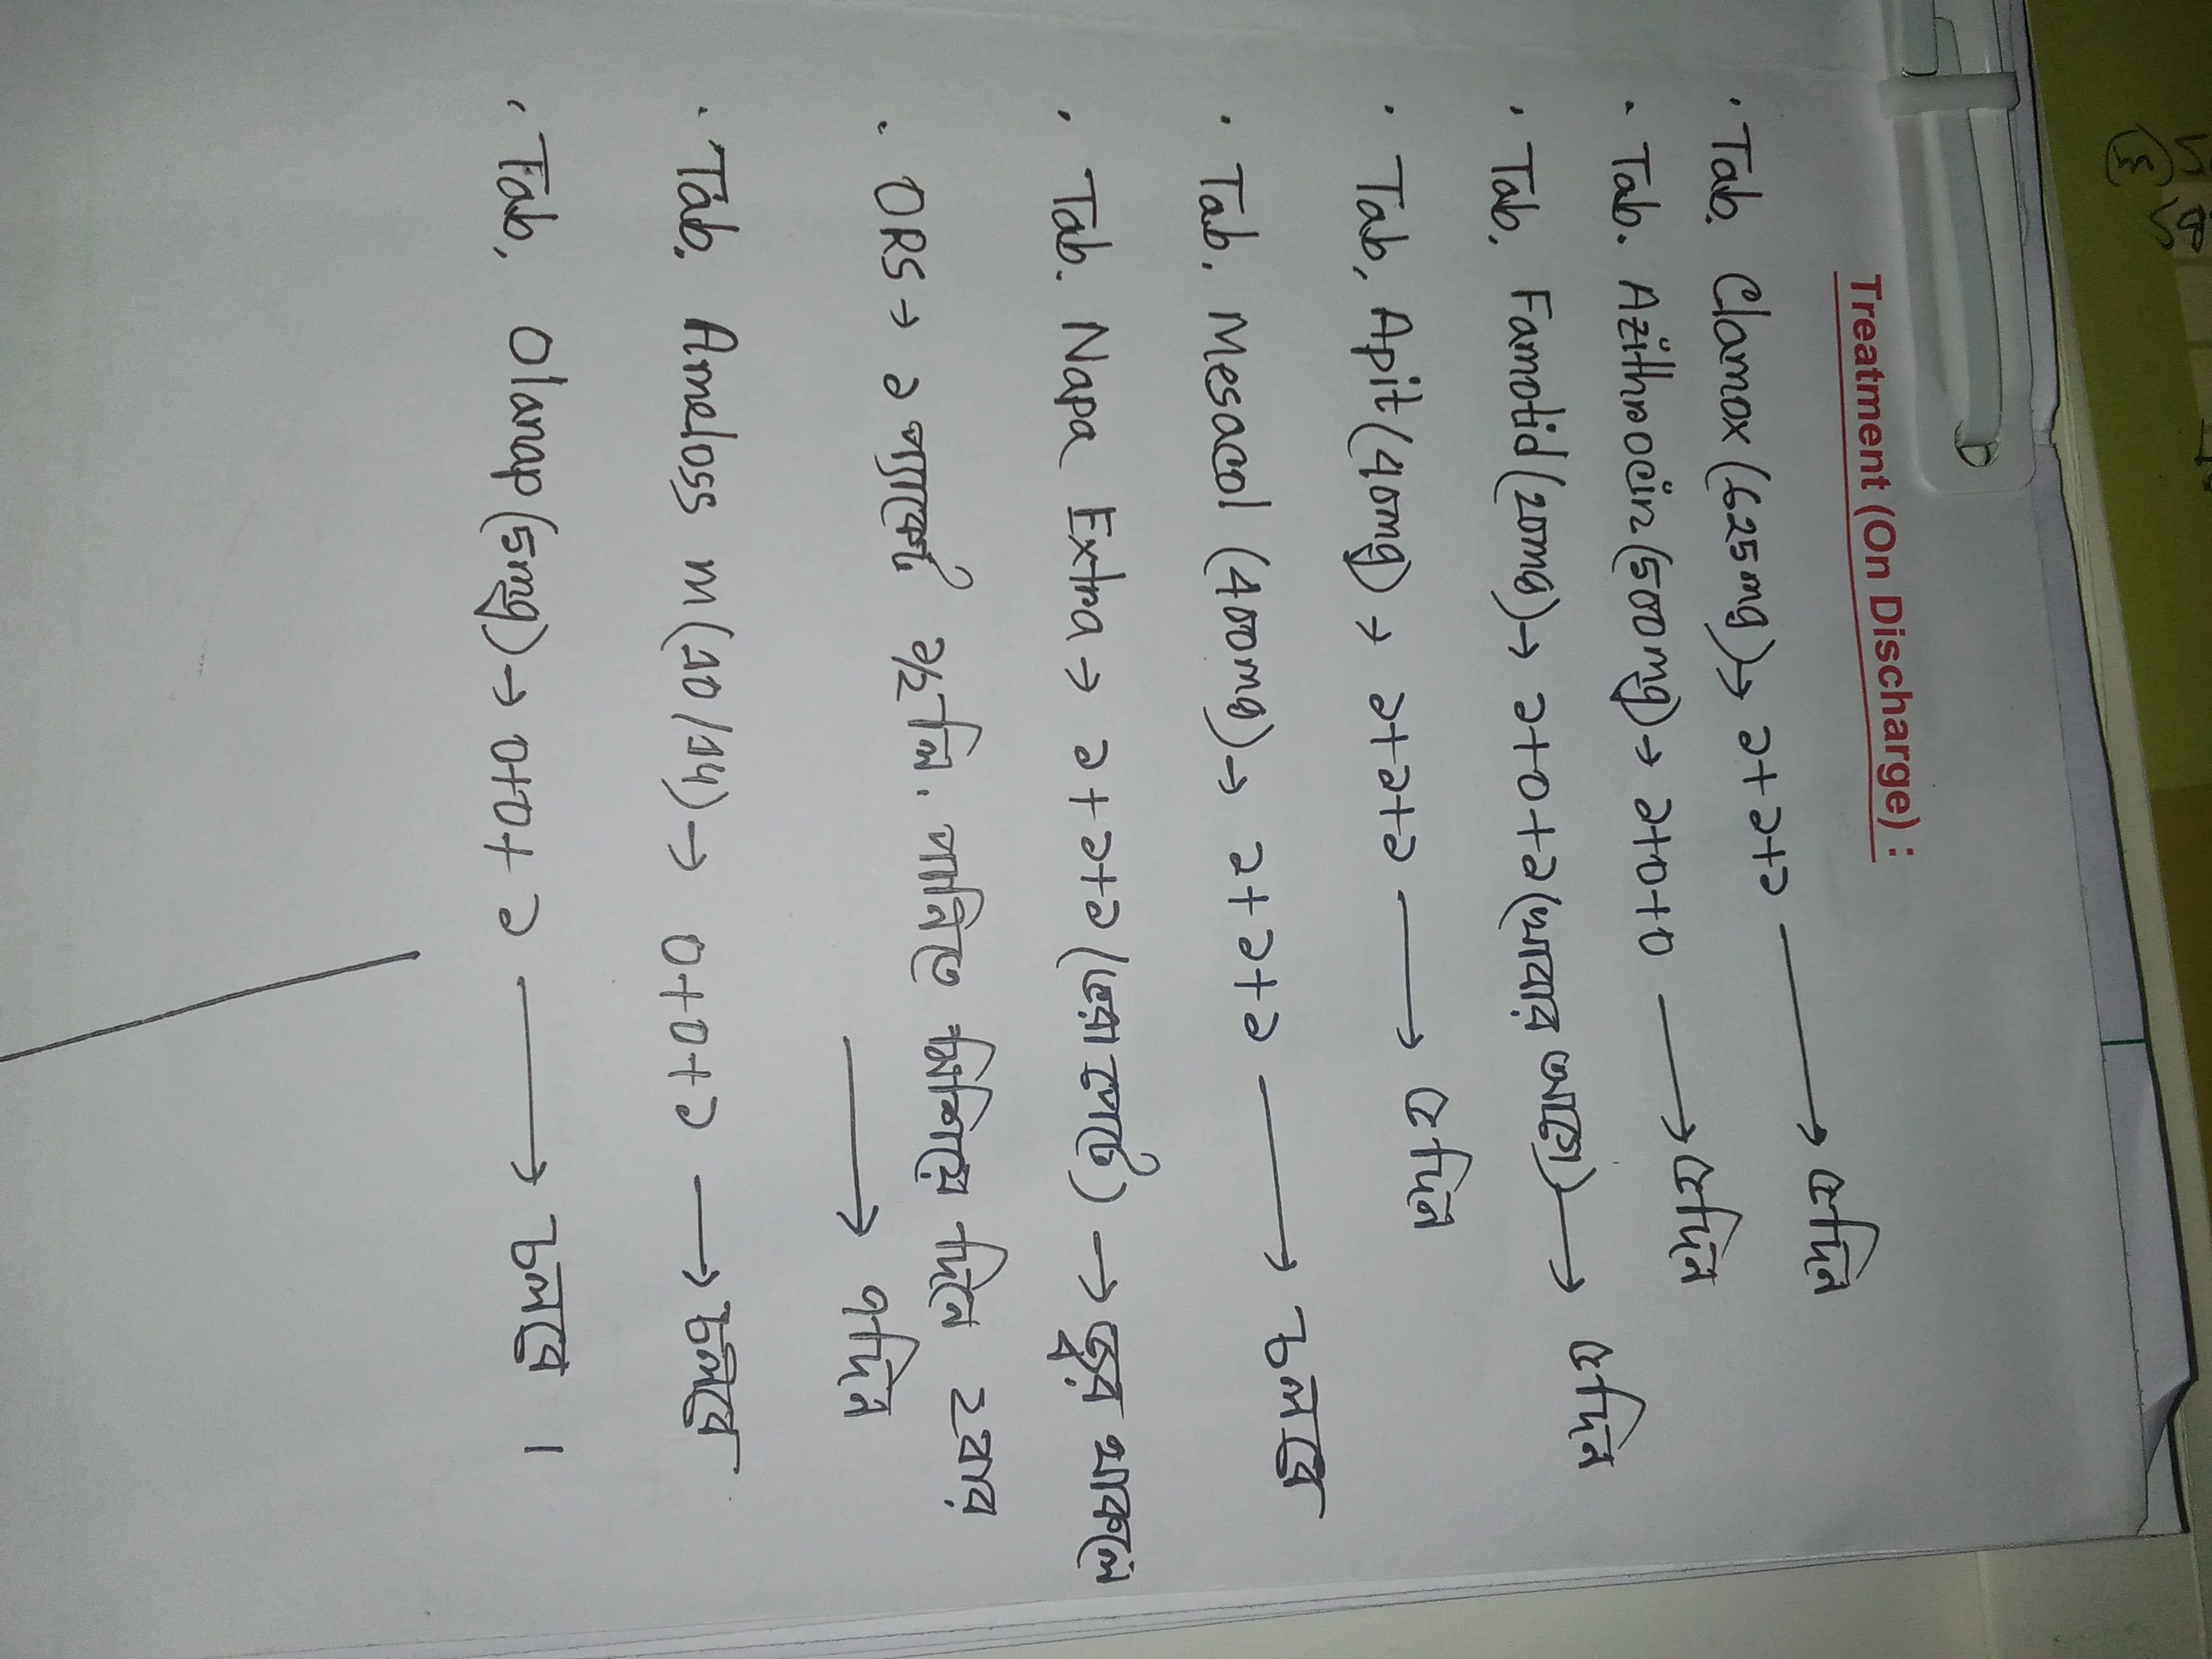 Treatment (On Discharge) :
· Tab. Clamox (625mg) → ১+১+১ → ৫দিন
· Tab. Azithrocin (500mg) → ১+০+০ → ৫দিন
· Tab. Famotid (20mg) → ১+০+১ (খাবার আগে) → ৫দিন
· Tab. Apit (40mg) → ১+১+১ → ৫দিন
· Tab. Mesacol (400mg) → ১+১+১ → চলবে
· Tab. Napa Extra → ১+১+১ (ভরা পেটে) → জ্বর থাকলে
· ORS → ১ প্যাকেট ১/২ লি. পানিতে মিশিয়ে দিনে ২বার
→ ৭দিন
· Tab. Ameloss M (10/14) → ০+০+১ → চলবে
· Tab. Olanap (5mg) → ০+০+১ → চলবে ।